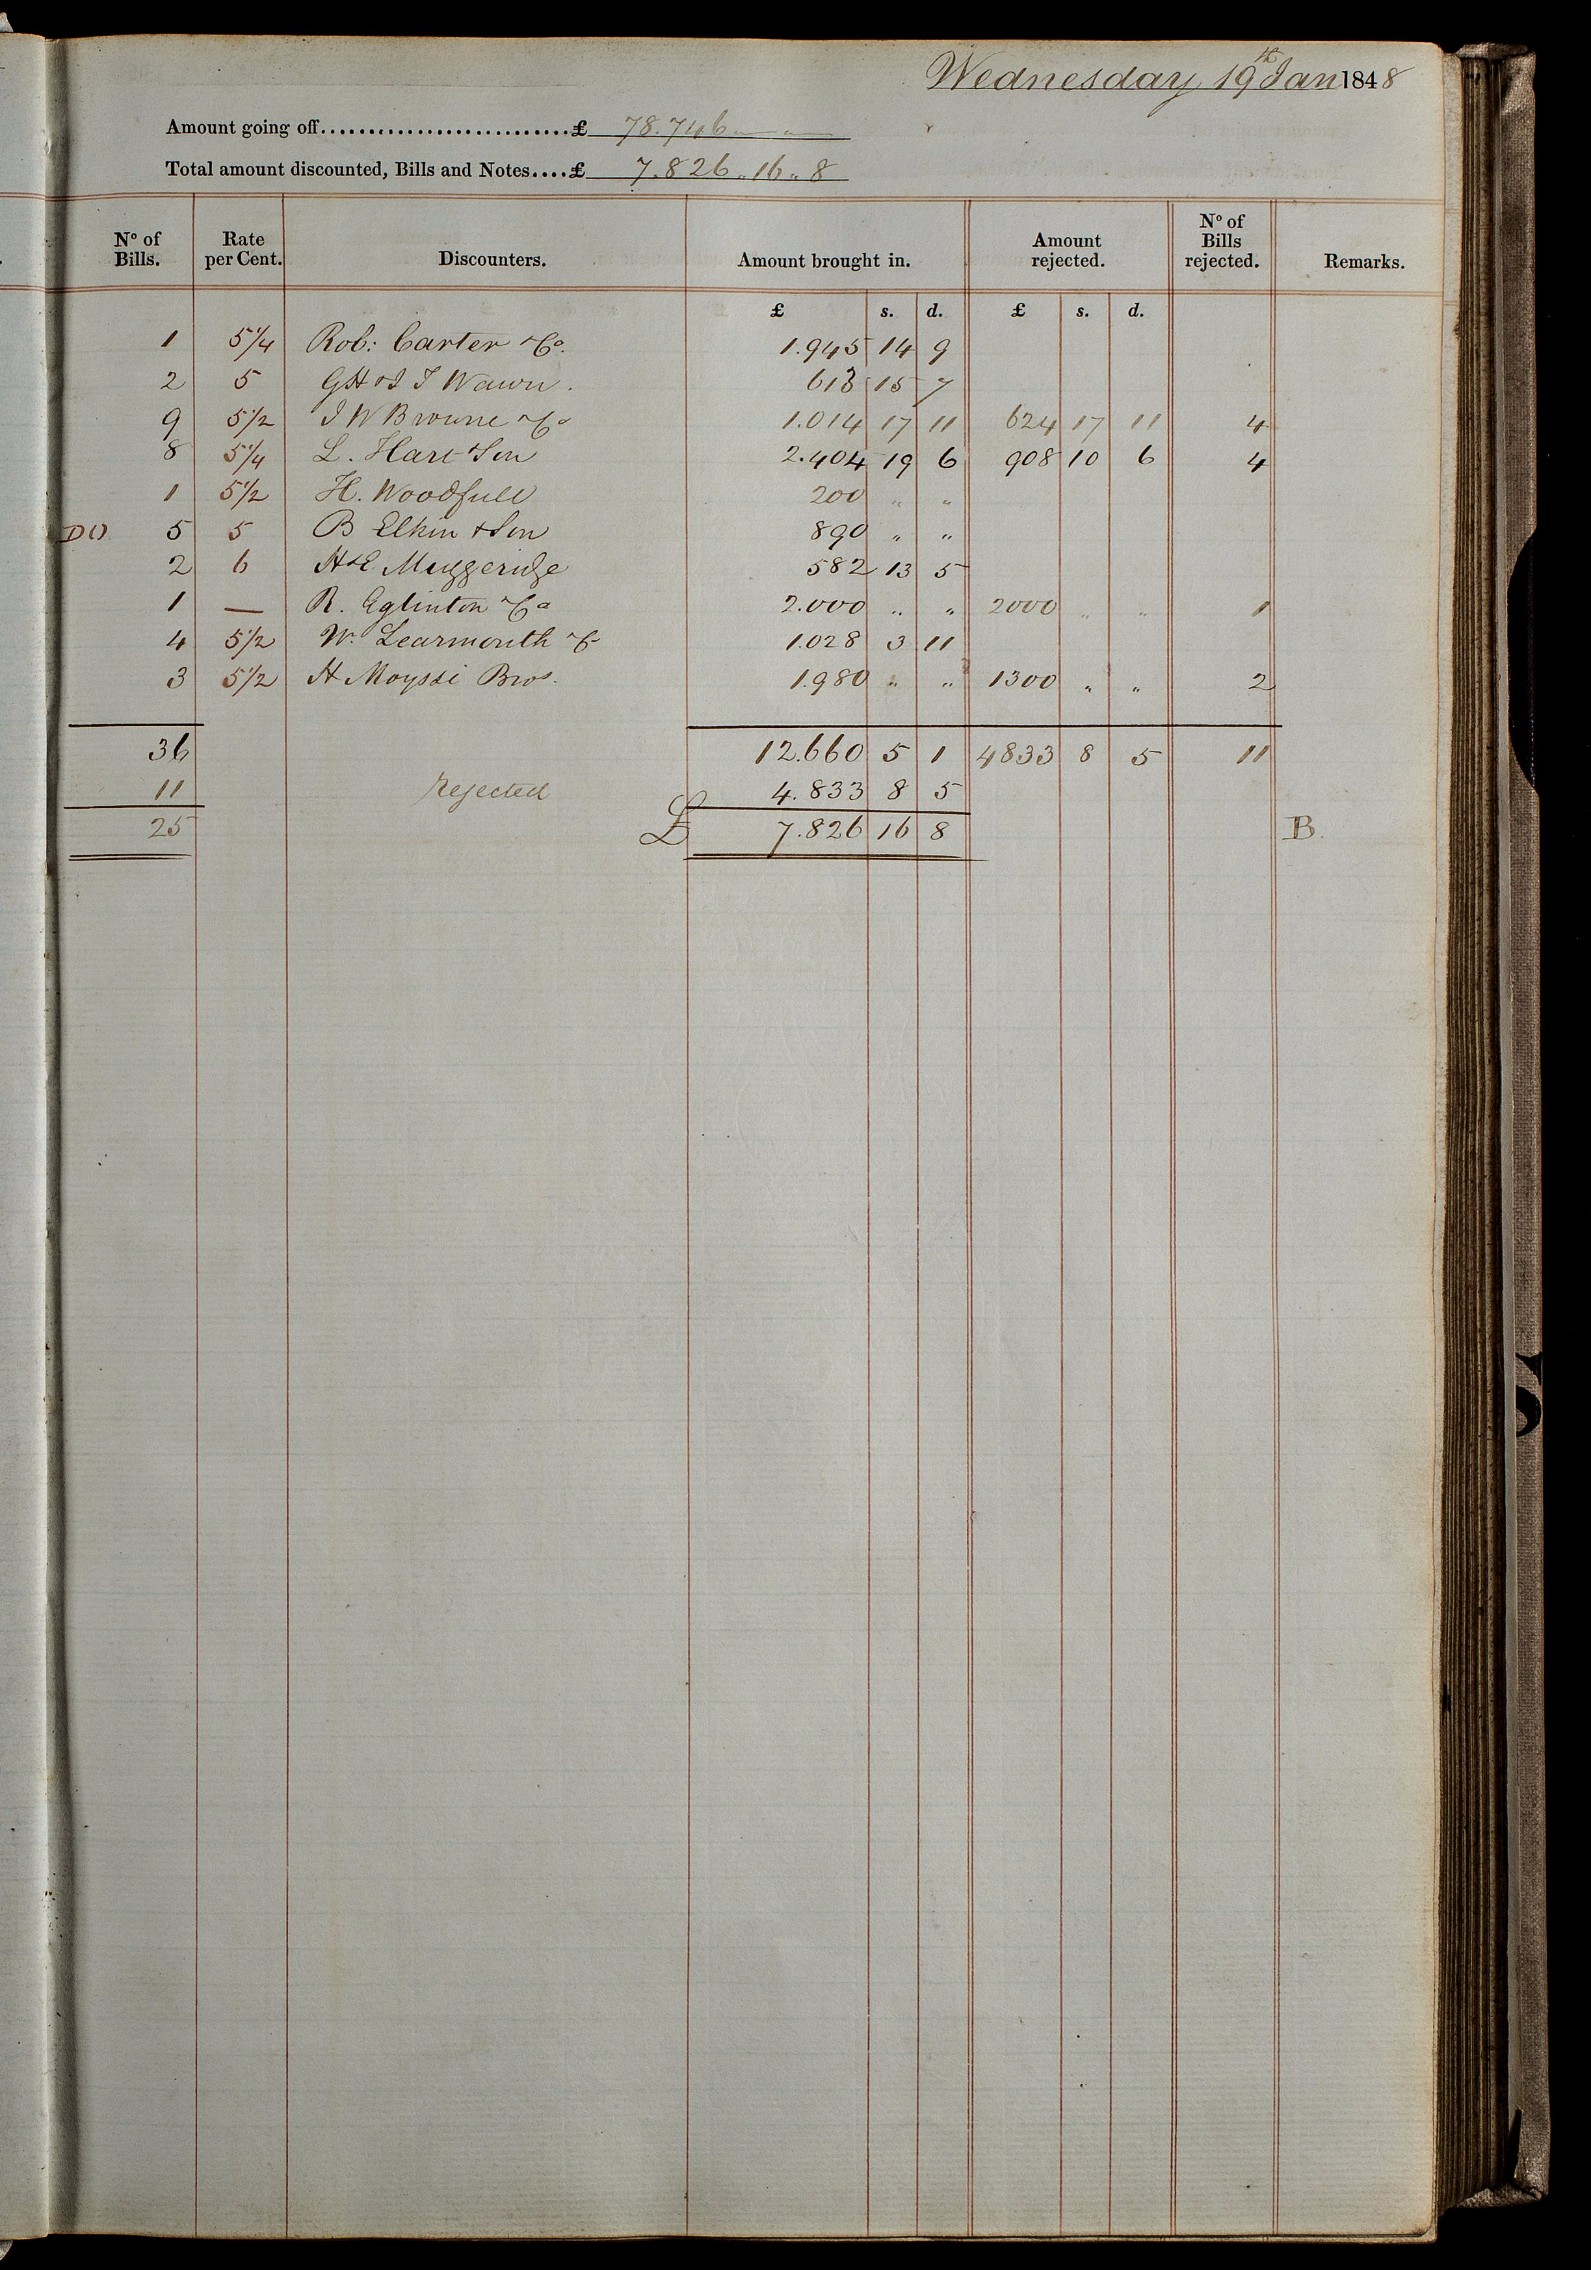 Wednesday 19th Jan 1848
Amount going off...........................£ 78.746 — " —
Total amount discounted, Bills and Notes....£ 7.826 " 16 " 8
No of Bills. Rate per Cent. Discounters. Amount brought in. Amount rejected. No of Bills rejected. Remarks.
£ s. d. £ s. d.
1 5 1/4 Rob: Carter & Co. 1.945 14 9
2 5 GH & J T Wawn. 613 15 7
9 5 1/2 J W Browne & Co 1.014 17 11 624 17 11 4
8 5 1/4 L. Hart & Son 2.404 19 6 908 10 6 4
1 5 1/2 H. Woodfull 200 " "
DO 5 5 B Elkin & Son 890 " "
2 6 H & E Muggeridge 582 13 5
1 — R. Eglinton & Co 2.000 " " 2000 " " 1
4 5 1/2 W. Learmonth & Co 1.028 3 11
3 5 1/2 H Moyssi Bros. 1.980 " " 1300 " " 2
36 12.660 5 1 4833 8 5 11
11 Rejected 4.833 8 5
25 £ 7.826 16 8 B.